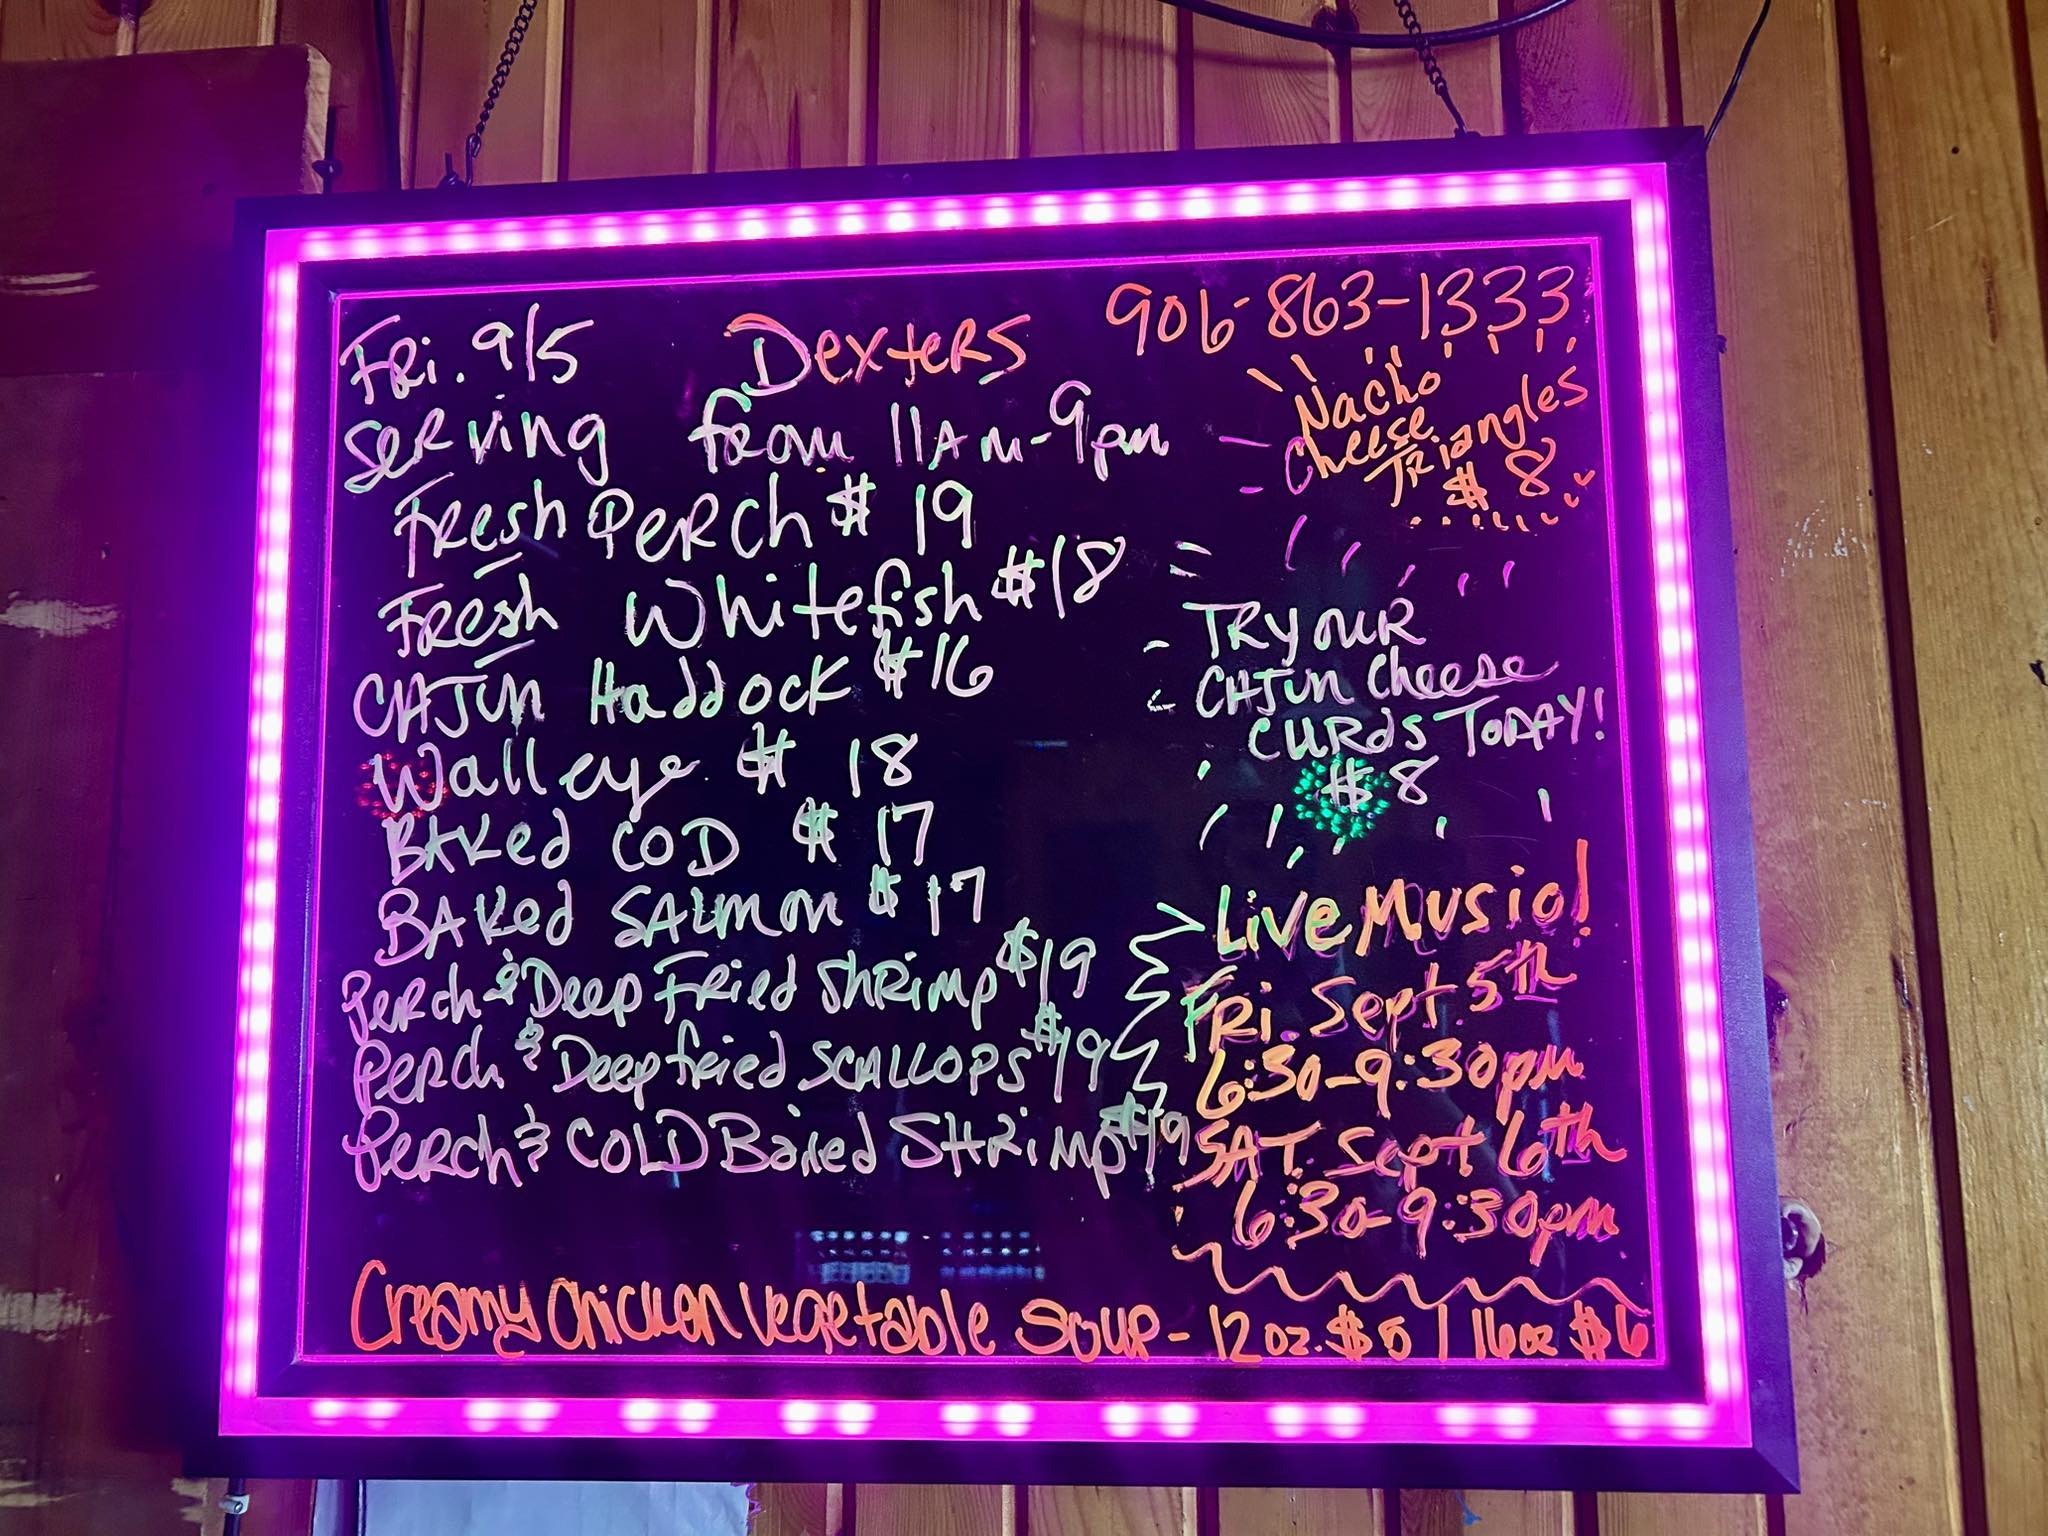 Fri. 9/5 Dexters 906-863-1333
Serving from 11Am-9pm
Fresh Perch $19
Fresh Whitefish $18
CAJUN Haddock $16
Walleye $18
BAKed COD $17
BAKed SALmon $17
Perch & Deep Fried Shrimp $19
Perch & Deep fried SCALLOPS $19
Perch & COLD Boiled SHRimp $19
Nacho
Cheese
Triangles
$8
TRY OUR
CAJUN Cheese
CURDS TODAY!
$8
Live Music!
Fri. Sept 5th
6:30-9:30pm
SAT. Sept 6th
6:30-9:30pm
Creamy Chicken Vegetable Soup - 12oz. $5 | 16oz $6